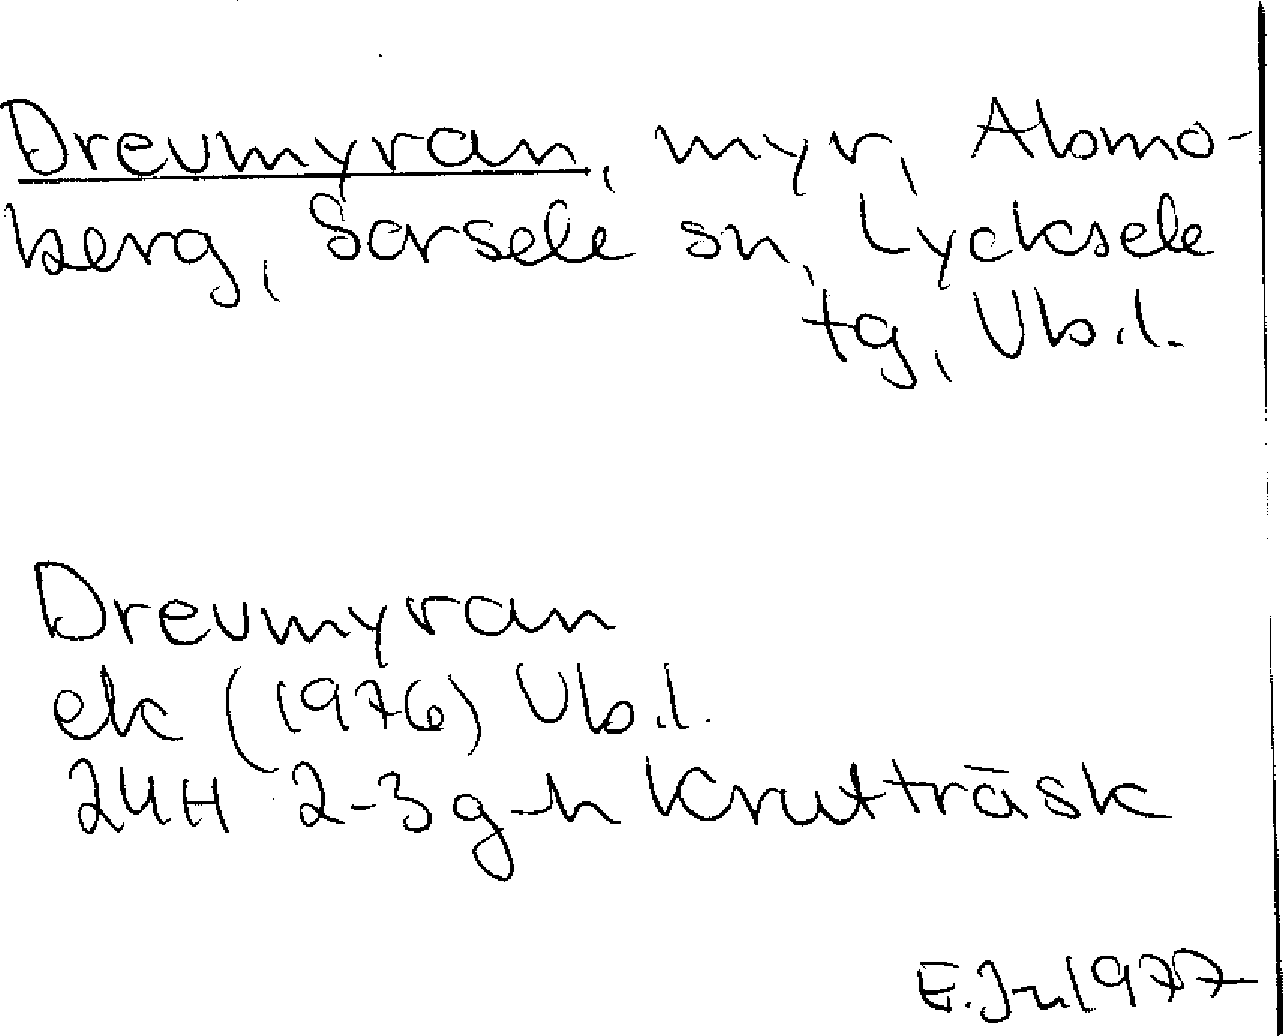 Drevmyran, myr, Abmo-
berg, Sorsele sn, Lycksele
tg, Vb.l.
Drevmyran
ek (1976) Vb.l.
24H 2-3 g-h Knutträsk
E.Jn 1977